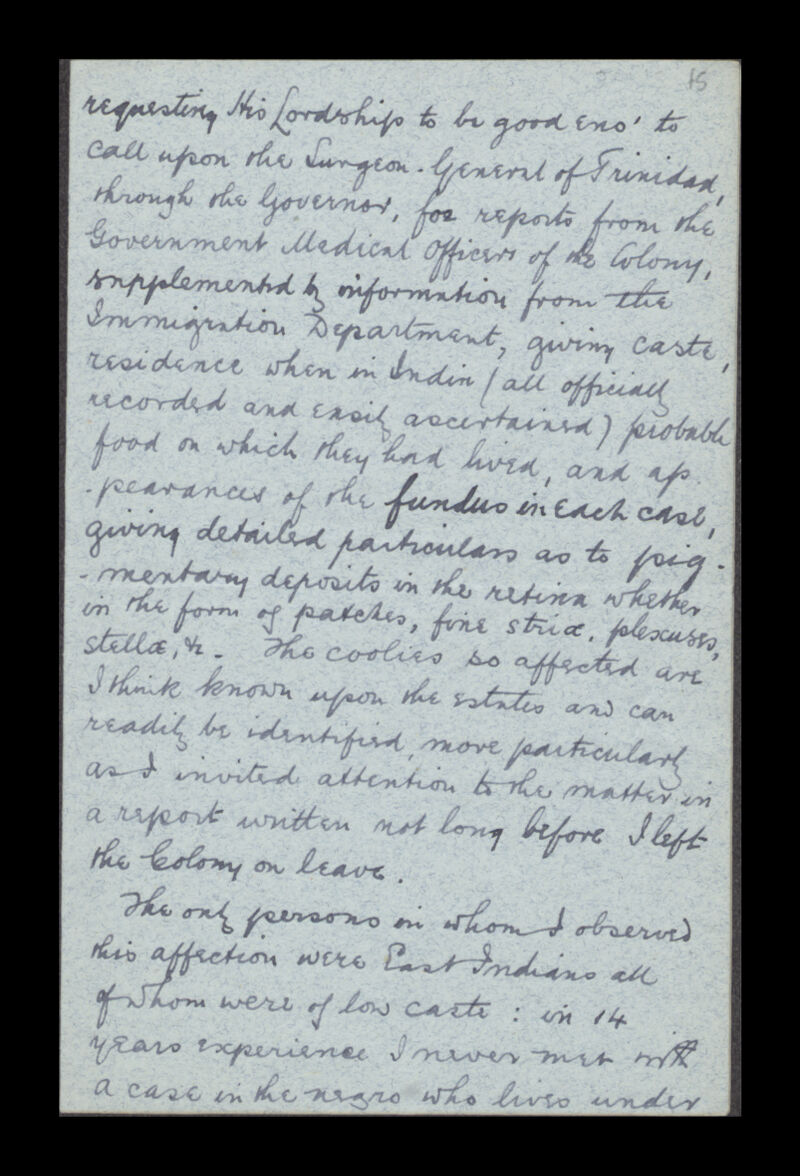 15
requesting His Lordship to be good eno' to
call upon the Surgeon-General of Trinidad,
through the Governor, for reports from the
Government Medical Officers of the Colony,
supplemented by information from the
Immigration Department, giving caste,
residence when in India (all officially
recorded and easily ascertained) probable
food on which they had lived, and ap
-pearances of the fundus in each case,
giving detailed particulars as to pig-
-mentary deposits in the retina whether
in the form of patches, fine striæ, plexuses,
stellæ, &c. The coolies so affected are
I think known upon the estates and can
readily be identified, more particularly
as I invited attention to the matter in
a report written not long before I left
the Colony on leave.
The only persons in whom I observed
this affection were East Indians all
of whom were of low caste : in 14
years experience I never met with
a case in the negro who lives under